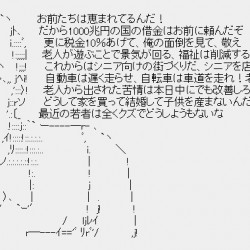 お前たちは恵まれてるんだ！
だから1000兆円の国の借金はお前に頼んだぞ
更に税金10%あげて、俺の面倒を見ろ、敬え
老人が遊ぶことで景気が回る、福祉は削減する
これからはシニア向けの街づくりだ、シニアを店
自動車は遅く走らせ、自転車は車道を走れ！老
老人から出された苦情は本日中にでも改善しろ
どうして家を買って結婚して子供を産まないんだ
最近の若者は全くクズでどうしようもないな